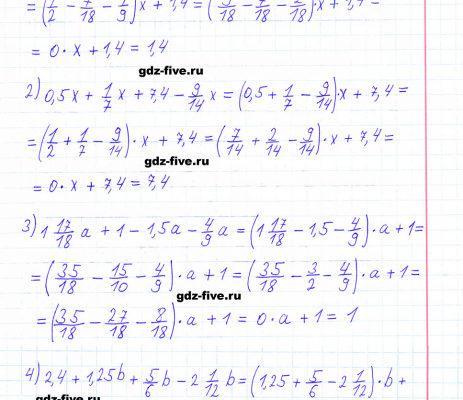 = (1/2 − 7/18 − 1/9)x + 1,4 = (9/18 − 7/18 − 2/18)·x + 1,4 =
= 0·x + 1,4 = 1,4
gdz-five.ru
2) 0,5x + 1/7 x + 7,4 − 9/14 x = (0,5 + 1/7 − 9/14)·x + 7,4 =
= (1/2 + 1/7 − 9/14)·x + 7,4 = (7/14 + 2/14 − 9/14)·x + 7,4 =
gdz-five.ru
= 0·x + 7,4 = 7,4
3) 1 17/18 a + 1 − 1,5a − 4/9 a = (1 17/18 − 1,5 − 4/9)·a + 1 =
= (35/18 − 15/10 − 4/9)·a + 1 = (35/18 − 3/2 − 4/9)·a + 1 =
gdz-five.ru
= (35/18 − 27/18 − 8/18)·a + 1 = 0·a + 1 = 1
4) 2,4 + 1,25b + 5/6 b − 2 1/12 b = (1,25 + 5/6 − 2 1/12)·b +
gdz-five.ru